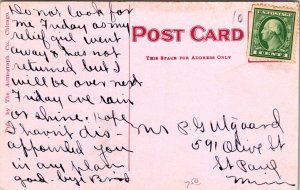 Do not look for
me Friday as my
relief girl went
away & has not
returned but I
will be over next
Friday eve rain
or shine. Hope
I havn't dis-
appointed you
in any plan
good-bye
POST CARD
THIS SPACE FOR ADDRESS ONLY
Mr P. G. Utgaard
591 Olive St
St Paul
Minn
Pub. by The Autograph Co. Chicago
10